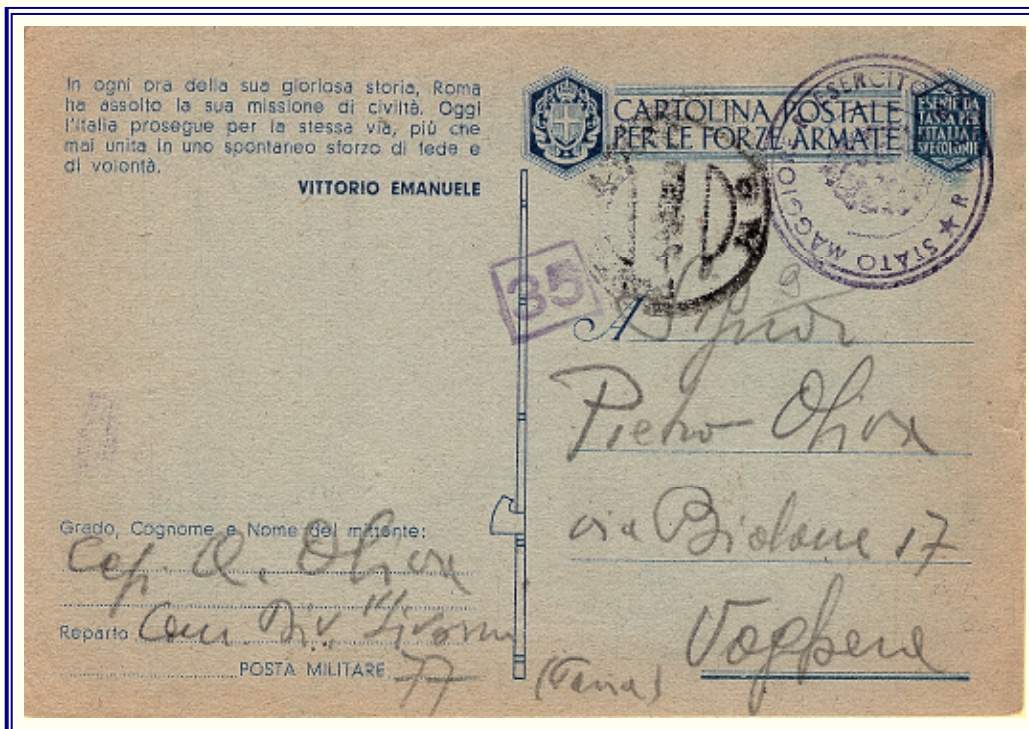 In ogni ora della sua gloriosa storia, Roma
ha assolto la sua missione di civiltà. Oggi
l'Italia prosegue per la stessa via, più che
mai unita in uno spontaneo sforzo di fede e
di volontà.
VITTORIO EMANUELE
CARTOLINA POSTALE
PER LE FORZE ARMATE
ESENTE DA
TASSA PER
L'ITALIA E
SUE COLONIE
ESERCITO R ★ STATO MAGGIOR
35
A Signor
Pietro Oliva
via Bidone 17
Voghera
(Pavia)
Grado, Cognome e Nome del mittente:
Cap. A. Oliva
Reparto Com. Div. "Livorno"
POSTA MILITARE 77